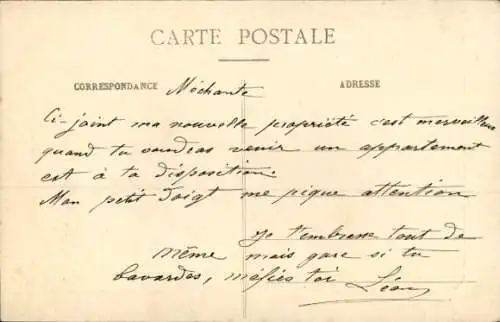 CARTE POSTALE
CORRESPONDANCE
ADRESSE
Méchante
Ci-joint ma nouvelle propriété c'est merveilleux
quand tu voudras venir un appartement
est à ta disposition.
Mon petit doigt me pique attention
Je t'embrasse tout de
même mais gare si tu
bavardes, méfies toi Léon